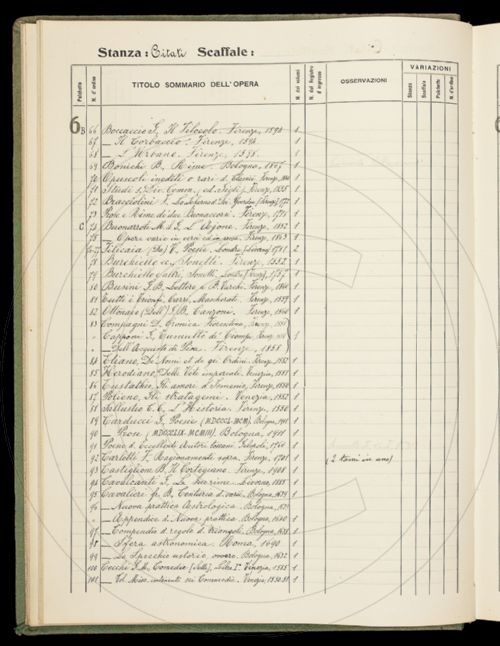 Stanza: Citati Scaffale:
VARIAZIONI
Palchetto
N. d'ordine
TITOLO SOMMARIO DELL'OPERA
N. dei volumi
N. del Registro d'ingresso
OSSERVAZIONI
Stanza
Scaffale
Palchetto
N. d'ordine
6 B 66 Boccaccio G. Il Filocolo. Firenze, 1594 1
67 — Il Corbaccio. Firenze, 1594 1
68 — L'Urbano. Firenze, 1598 1
69 Bonichi B. Rime. Bologna, 1867 1
70 Opuscoli inediti o rari di Classici Firenze 1
71 Studi s. Div. Comm. ed. Firenze, 1855 1
72 Bracciolini F. Lo Scherno d. Dei 1
73 Rose e Rime di due Buonaccorsi. Firenze, 1718 1
C 74 Buonarroti M. d. G. L'Ajone. Firenze, 1852 1
75 — Opere varie in versi ed in prosa. Firenze, 1863 1
76-77 Filicaia (Da) V. Poesie, Londra (Livorno) 1781 2
78 Burchiello Sonetti. Firenze, 1552 1
79 Burchiello Sonetti. Londra 1757 1
80 Busini G. B. Lettere a B. Varchi. Firenze, 1860 1
81 Tutti i Trionfi, Carri, Mascherate. Firenze, 1559 1
82 Ottonaio (Dell') G. B. Canzone. Firenze, 1560 1
83 Compagni D. Cronica Fiorentina, Firenze, 1
— Capponi G. Tumulto de' Ciompi,
— Dell'Acquisto di Pisa. Firenze, 1858
84 Eliano, De' Nomi et de gli Ordini. Firenze, 1552 1
85 Herodiano, Delle Vite imperiali. Venezia, 1551 1
86 Eustathio, Gli amori d'Ismenio, Firenze, 1550 1
87 Polieno, Gli stratagemi. Venezia, 1552 1
88 Sallustio C. C. L'Historia. Firenze, 1550 1
89 Carducci G. Poesie (MDCCCL-MCM). Bologna, 1911 1
90 — Prose (MDCCCLIX-MCMIII). Bologna, 1911 1
91 Poesie d. eccellenti Autori toscani. 1
92 Carletti F. Ragionamenti sopra. Firenze, 1701 1 (2 tomi in uno)
93 Castiglione B. Il Cortegiano. Firenze, 1908 1
94 Cavalcanti G. Le Rime. Livorno, 1885 1
95 Cavalieri fr. B. Centuria di varii. Bologna, 1639 1
96 — Nuova prattica Astrologica. Bologna, 1639 1
— Appendice d. Nuova prattica. Bologna, 1640
97 — Compendio d. regole d. triangoli. Bologna, 1638 1
98 — Sfera astronomica. Roma, 1690 1
99 — Lo Specchio ustorio, ovvero. Bologna, 1632 1
100 Cecchi G. M. Comedie (Sette), Libro I°. Venezia, 1585 1
101 — Vol. Misc. contenente sei Commedie. Venezia, 1550-51 1